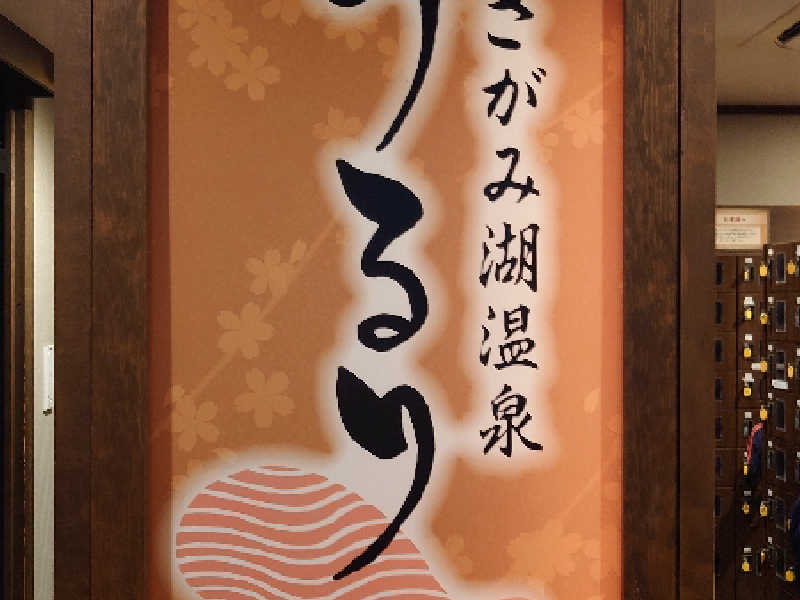 さがみ湖温泉
うるり